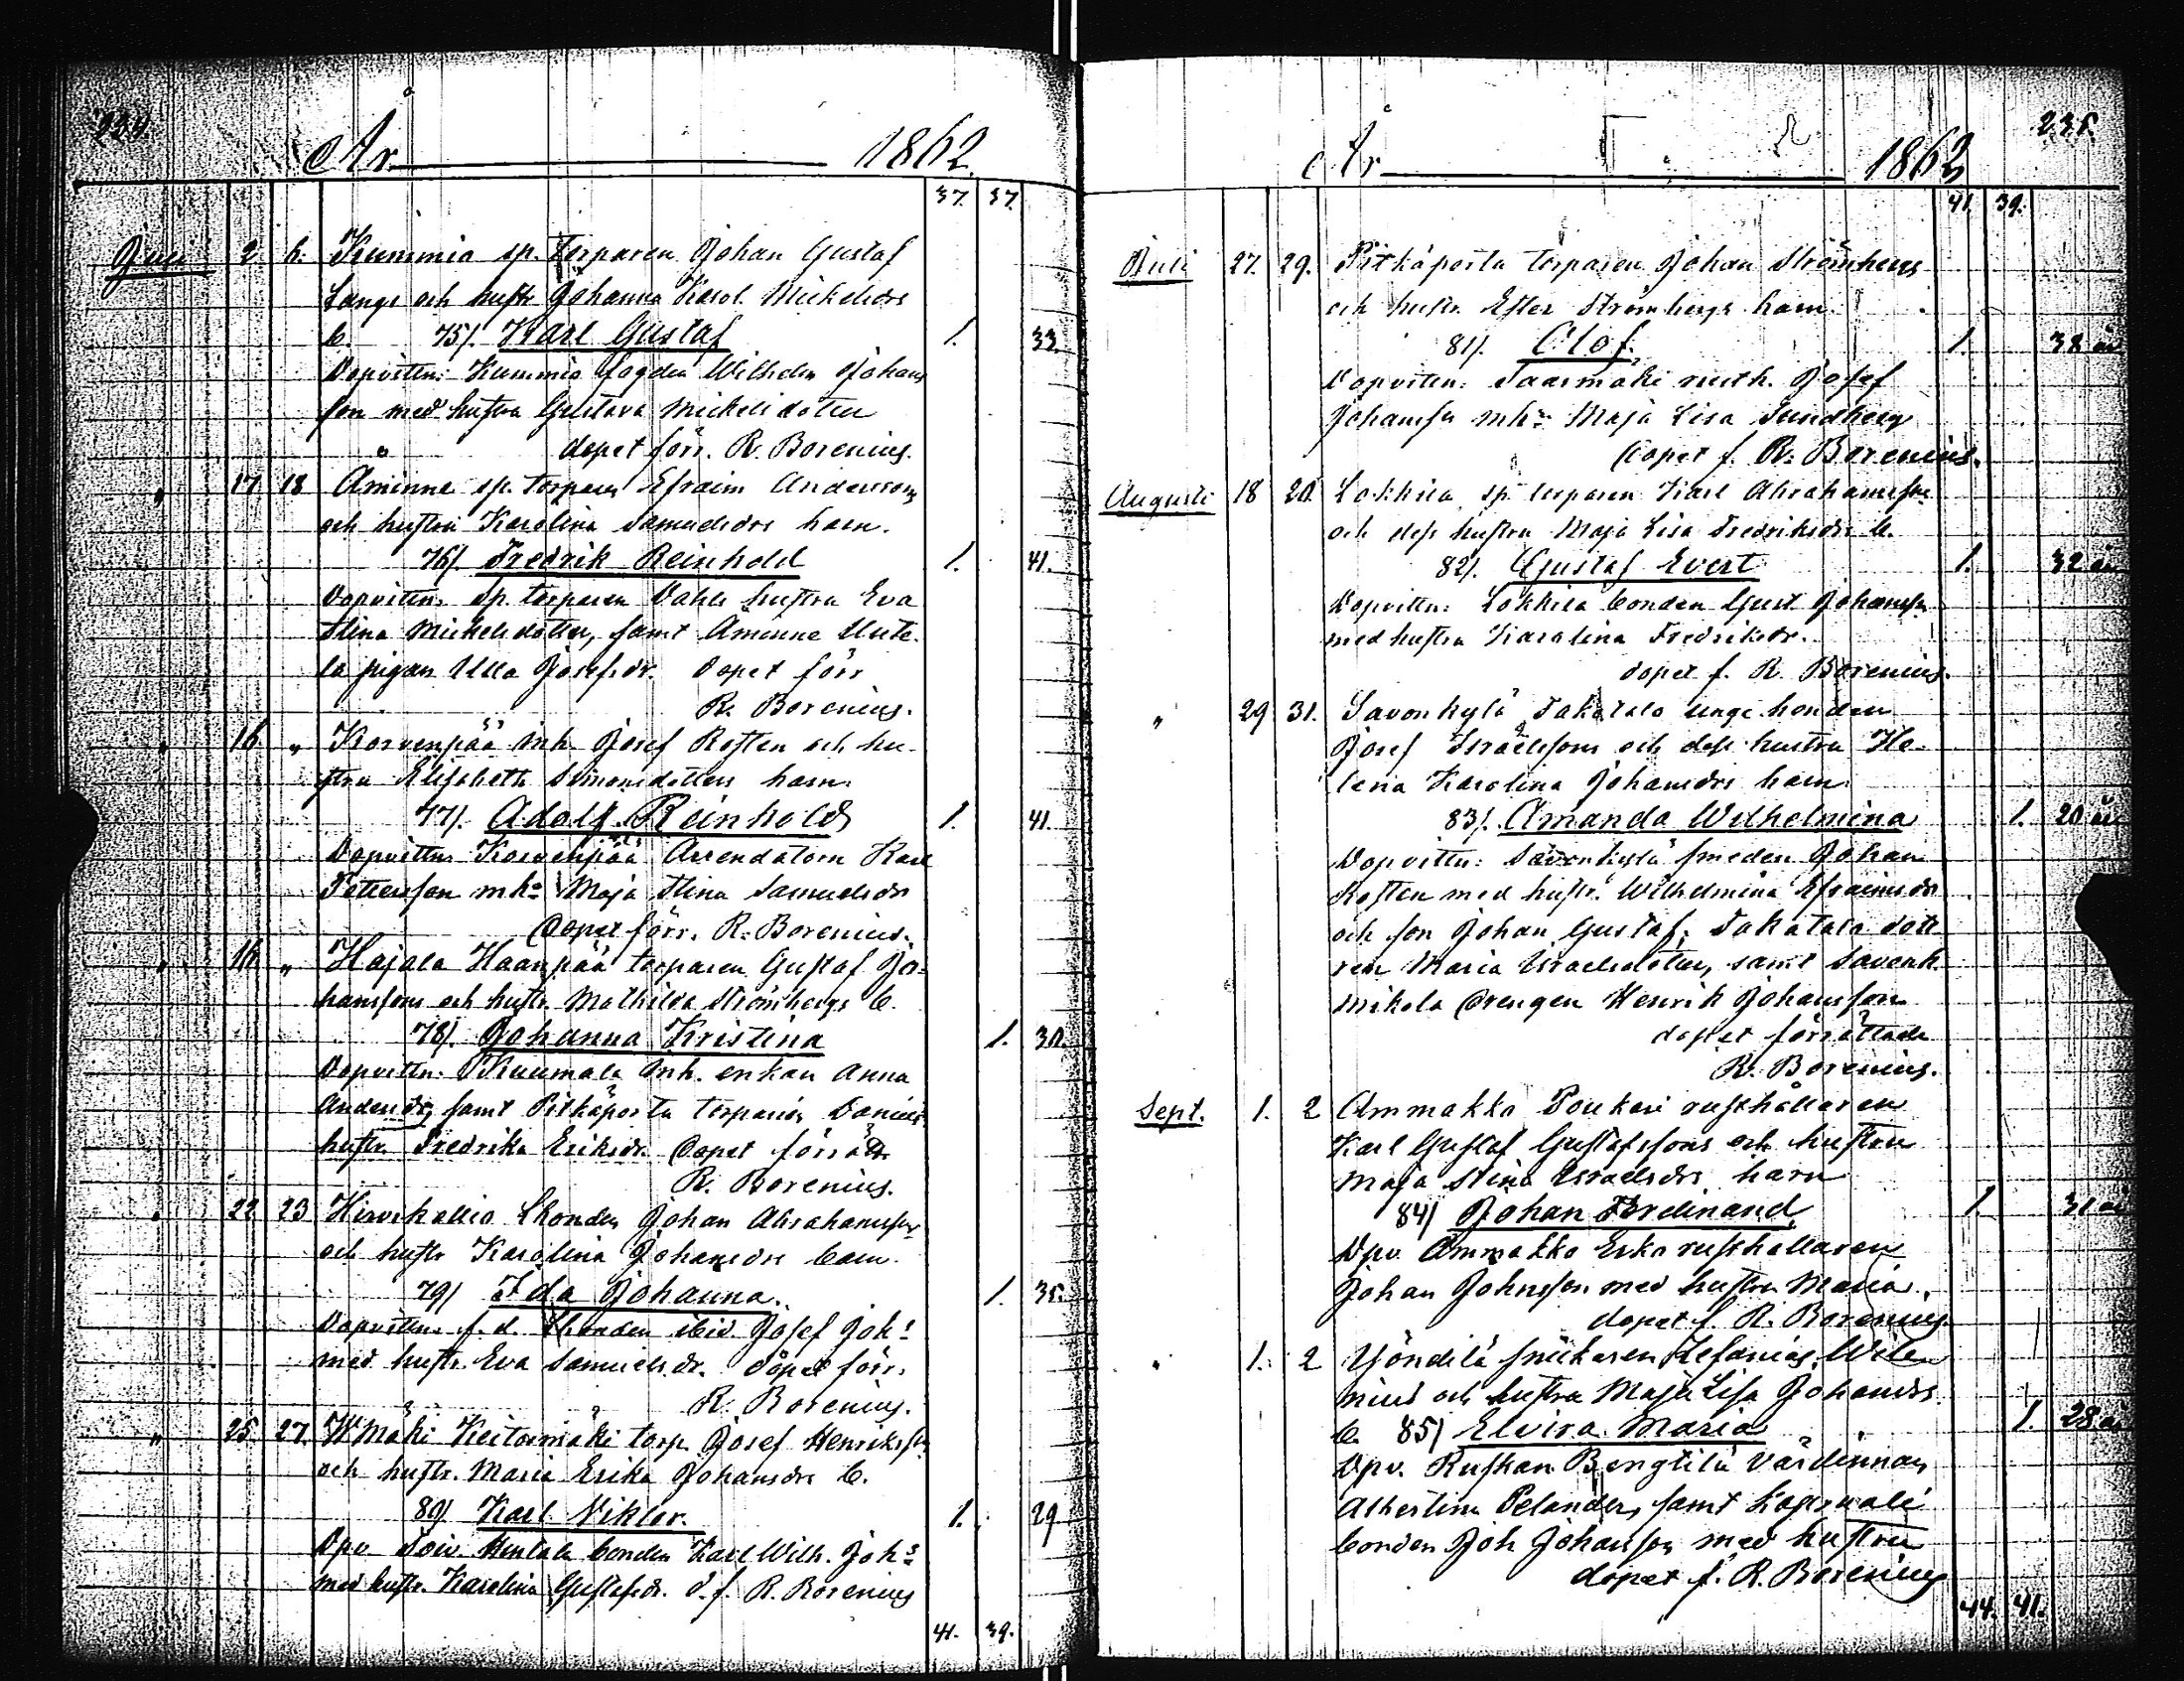 234.
År 1862.
37. 37.
Juli 2 6. Kummia sp. torparen Johan Gustaf
Langs och hustr Johanna Karol. Mickelsdrs
b. 75/. Karl Gustaf 1. 33.
Dopvittn: Kummia fogden Wilhelm Johans
son med hustra Gustava Mickelsdotter
dopet förr. R. Borenius.
" 17 18 Åminne sp. torparen Efraim Anderssons
och hustru Karolina Samuelsdrs barn.
76/. Fredrik Reinhold 1. 41.
Dopvittn. sp. torparen Dahls hustru Eva
Stina Mickelsdotter, samt Åminne Unte-
la pigan Ulla Josefsdr. dopet förr
R. Borenius.
" 16. " Korvenpää inh. Josef Rosten och hu-
stru Elisabeth Simonsdotters barn.
77/. Adolf Reinhold 1. 41.
Dopvittn Korvenpää Arrendatorn Karl
Pettersson mha Maja Stina Samuelsdr
dopet förr. R. Borenius.
" 16. " Hajala Haanpää torparen Gustaf Jo-
hanssons och hustr. Mathilda Strömbergs b.
78/. Johanna Kristina 1. 30.
Dopvittn: Kuumala inh. enkan Anna
Andersdr, samt Pitkäporta torparen Daniels
hustr. Fredrika Eriksdr. dopet förrätt
R. Borenius.
" 22. 23 Hirvikallio bonden Johan Abrahamssons
och hustr Karolina Johansdrs barn.
79/ Ida Johanna. 1. 35.
Dopvittn. f. d. bonden ibid Josef Johs
med hustr. Eva Samuelsdr. dopet förr.
R. Borenius.
" 25. 27. Mäki Keitosmäki torp. Josef Henrikss
och hustr. Maria Erika Johansdrs b.
80/. Karl Viktor. 1. 29
Dpv bonden Karl Wilh. Johs
med hustr. Karolina Gustafsdr. d. f. R. Borenius
41. 39.
235.
År 1862
41. 39.
Juli 27. 29. Pitkäporta torparen Johan Strömbergs
och hustr. Ester Strömbergs barn.
81/. Olof. 1. 38 år
Dopvittn: Saarmäki rusth. Josef
Johansson mha Maja Lisa Sundberg
dopet f. R. Borenius.
Augusti 18 20. Lokkila sp. torparen Karl Abrahamssons
och dess hustru Maja Lisa Fredriksdrs b.
82/. Gustaf Evert 1. 32 år
Dopvittn: Lokkila bonden Gust Johanss.
med hustra Karolina Fredriksdr.
dopet f. R. Borenius.
" 29 31. Savonkylä Takatalo unge bonden
Josef Israelssons och dess hustru He-
lena Karolina Johansdrs barn
83/. Amanda Wilhelmina 1. 20 år
Dopvittn: Savonkylä smeden Johan
Rosten med hustr. Wilhelmina Efraimsdr
och son Johan Gustaf, Takatalo dott
ren Maria Israelsdotter, samt Savonk.
Mikola drengen Henrik Johansson
dopet förrättade
R. Borenius.
Sept. 1. 2 Ammakko Poukari rusthållaren
Karl Gustaf Gustafssons och hustru
Maja Stina Israelsdrs barn
84/ Johan Ferdinand 1. 31 år
Dpv. Ammakko Erko rusthållaren
Johan Johnsson med hustru Maria.
dopet f. R. Borenius.
" 1. 2 Yöndilä snickaren Zefanias Wile-
nius och hustra Maja Lisa Johansdrs
b. 85/ Elvira Maria 1. 28 år
Dpv. Ruskon Bengtilä värdinnan
Albertina Pelander, samt
bonden Joh Johansson med hustru
dopet f. R. Borenius
44. 41.